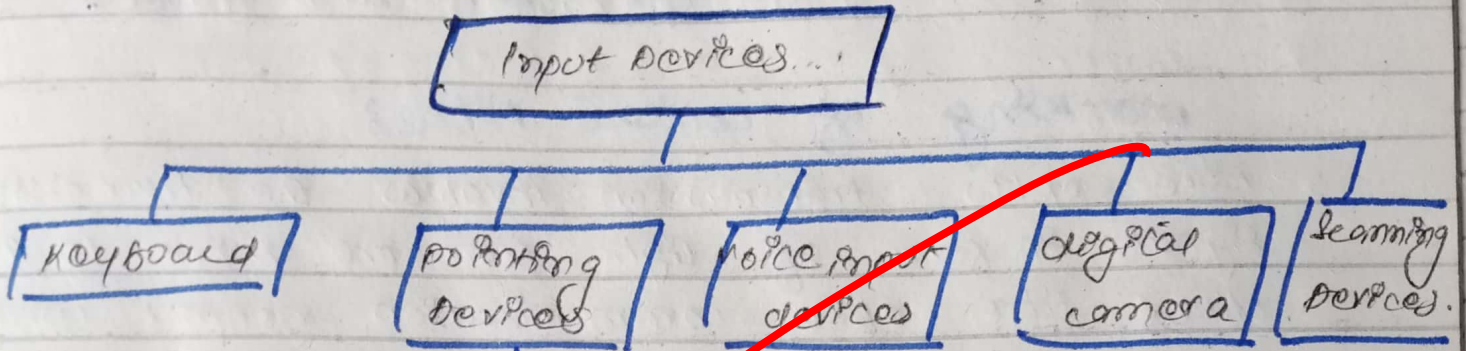 Input Devices...
Keyboard
Pointing
Devices
Voice input
devices
digital
camera
Scanning
Devices.